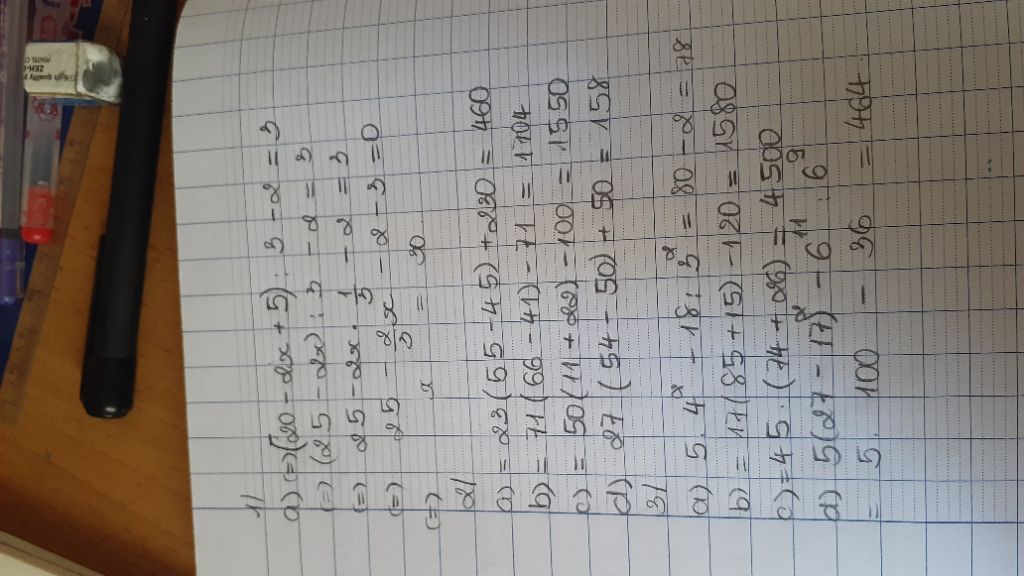 1)
a) (=) (20 - 2x + 5) : 3 - 2 = 3
(=) (25 - 2x) : 3 - 2 = 3
(=) 25 - 2x . 1/3 - 2 = 3
(=) 25 - 2/3 x - 2 - 3 = 0
(=) x = 30
2)
a) = 23 (55 - 45) + 230 = 460
b) = 71 (66 - 41) - 71 = 1704
c) = 50 (11 + 22) - 100 = 1550
d) 27 (54 - 50) + 50 = 158
3)
a) 5. 4² - 18 : 3² = 80 - 2 = 78
b) = 17 (85 + 15) - 120 = 1580
c) = 45 . (74 + 26) = 4500
d) 5 (27 - 17)² - 6¹¹ : 6⁹
= 5. 100 - 36 = 464
high quality
ZEH-
PENTEL